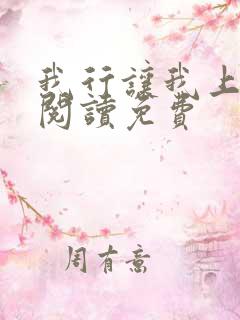 我行讓我上
閱讀免費
周有意